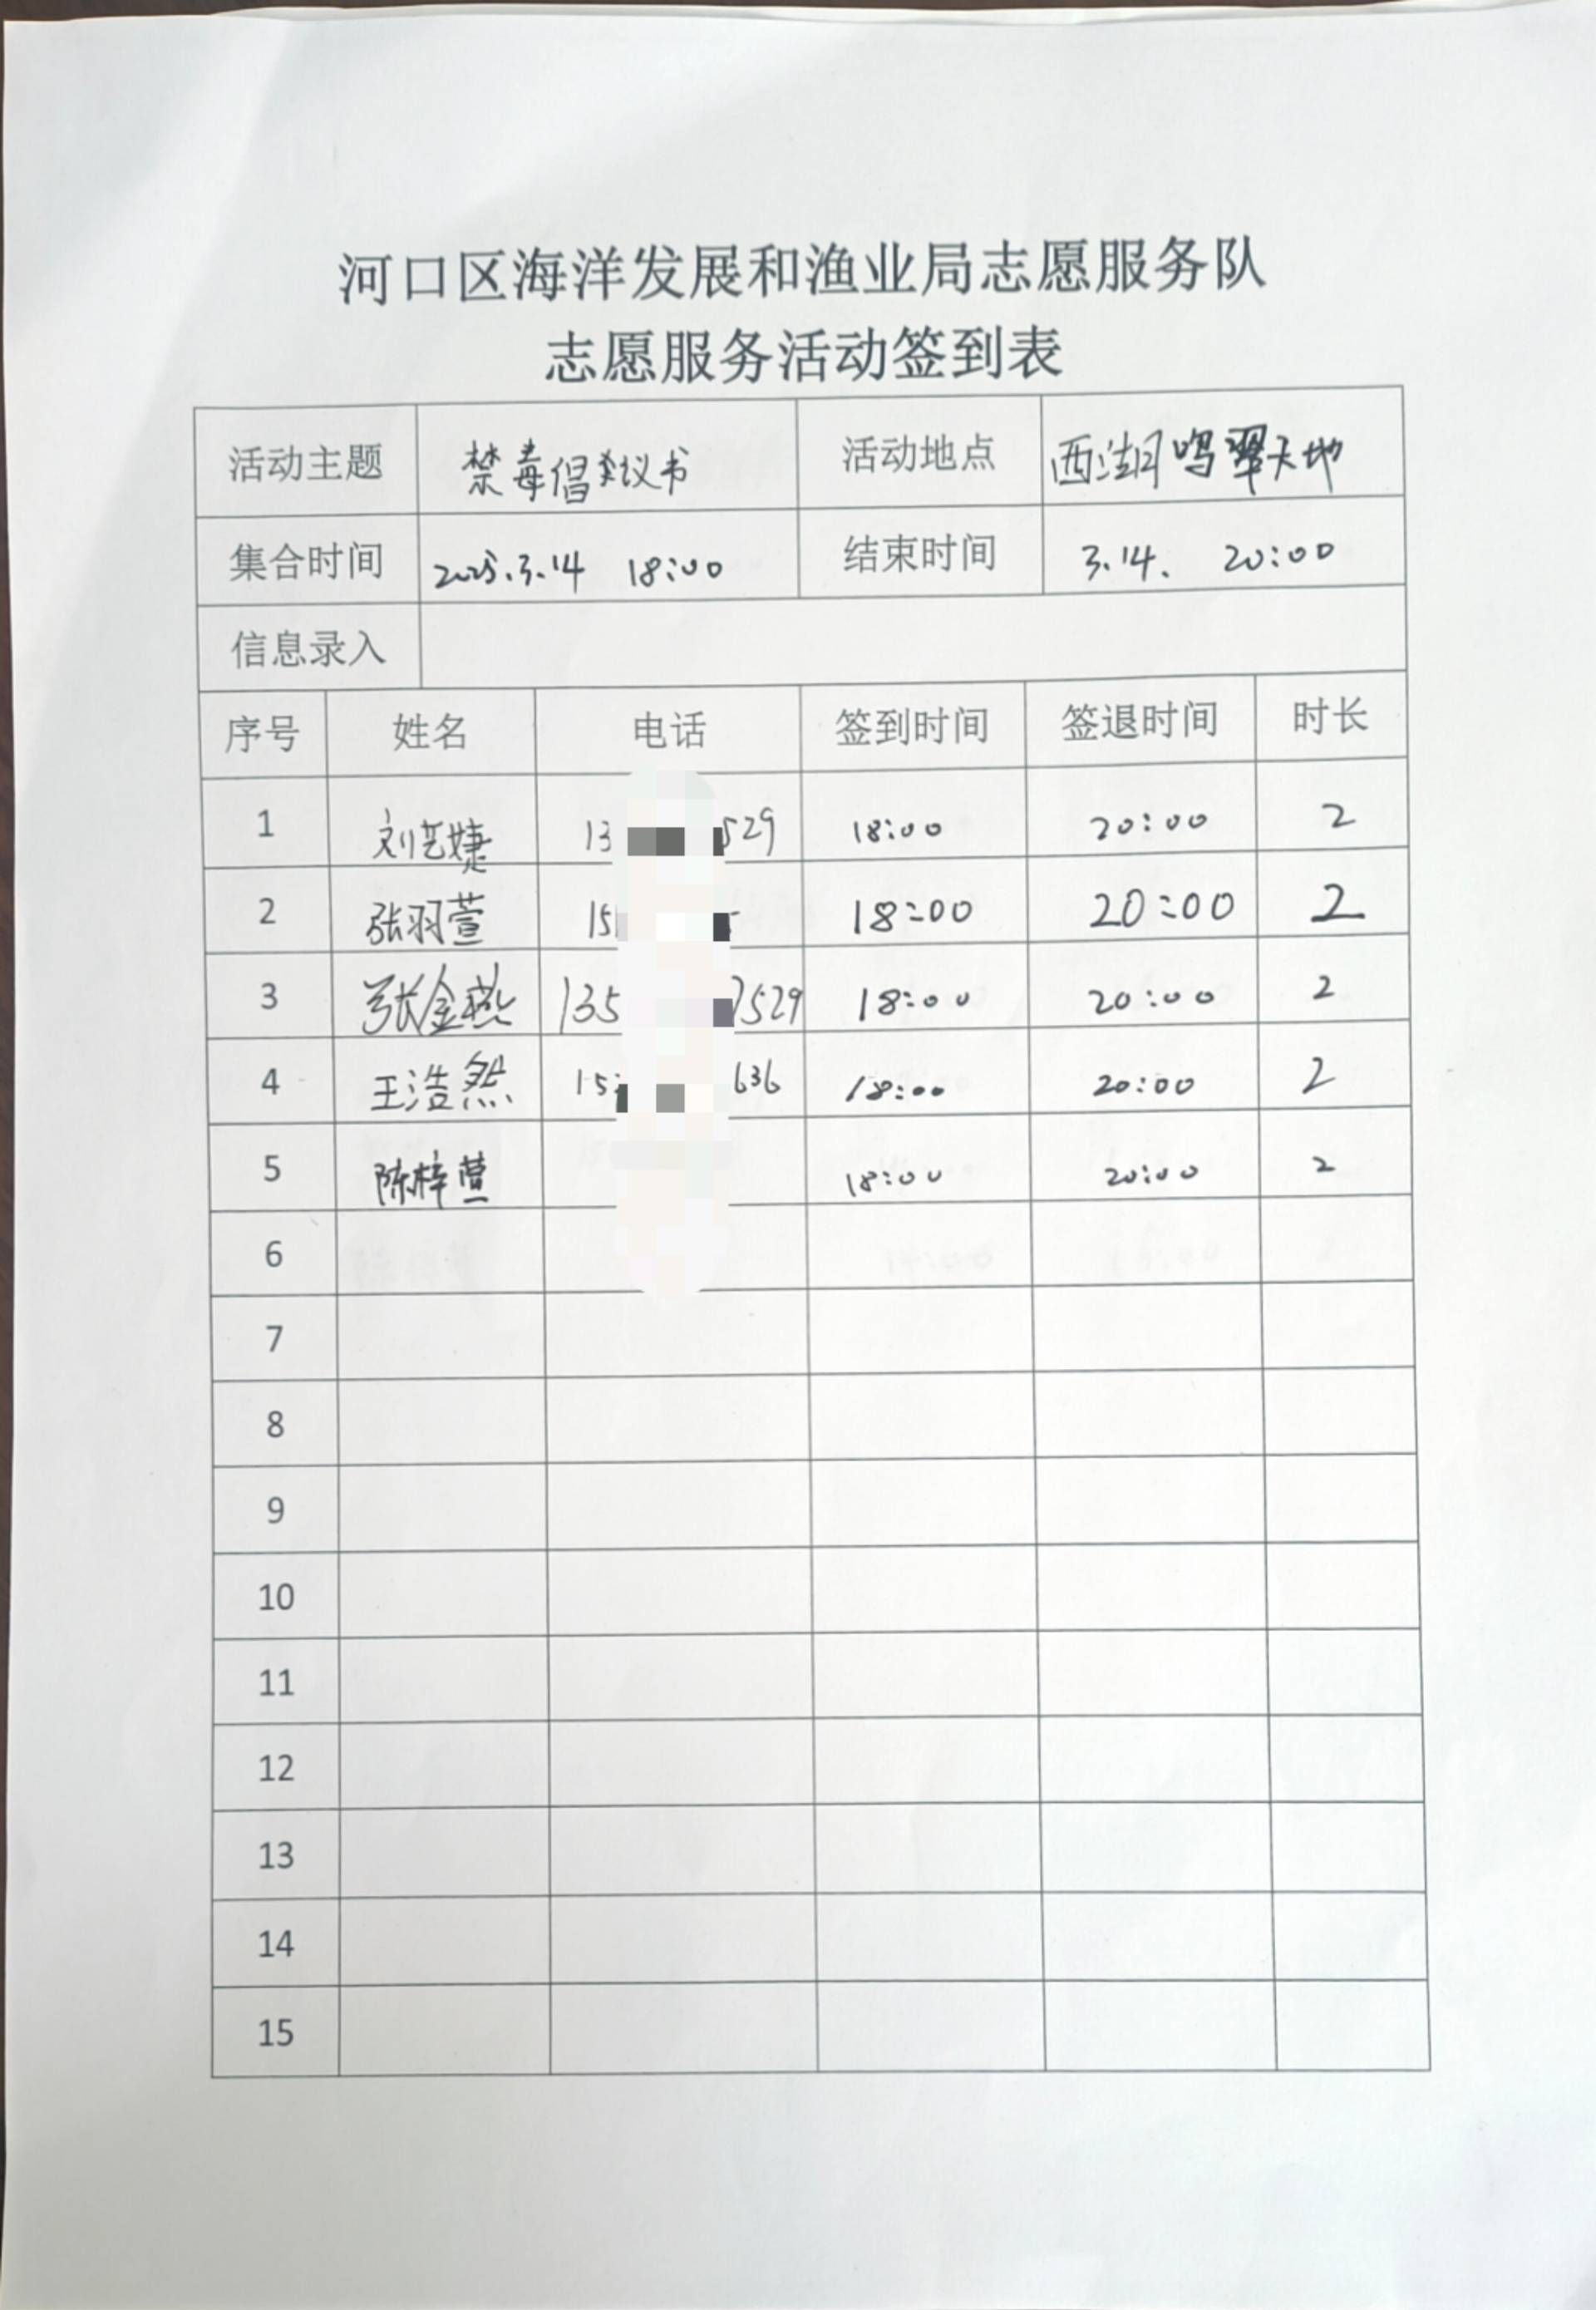 河口区海洋发展和渔业局志愿服务队
志愿服务活动签到表
活动主题 禁毒倡议书 活动地点 西湖鸣翠天地
集合时间 2025.3.14 18:00 结束时间 3.14. 20:00
信息录入
序号 姓名 电话 签到时间 签退时间 时长
1 刘艺婕 13 529 18:00 20:00 2
2 张羽萱 15 18:00 20:00 2
3 张金燕 135 7529 18:00 20:00 2
4 王浩然 15 636 18:00 20:00 2
5 陈梓萱 18:00 20:00 2
6
7
8
9
10
11
12
13
14
15